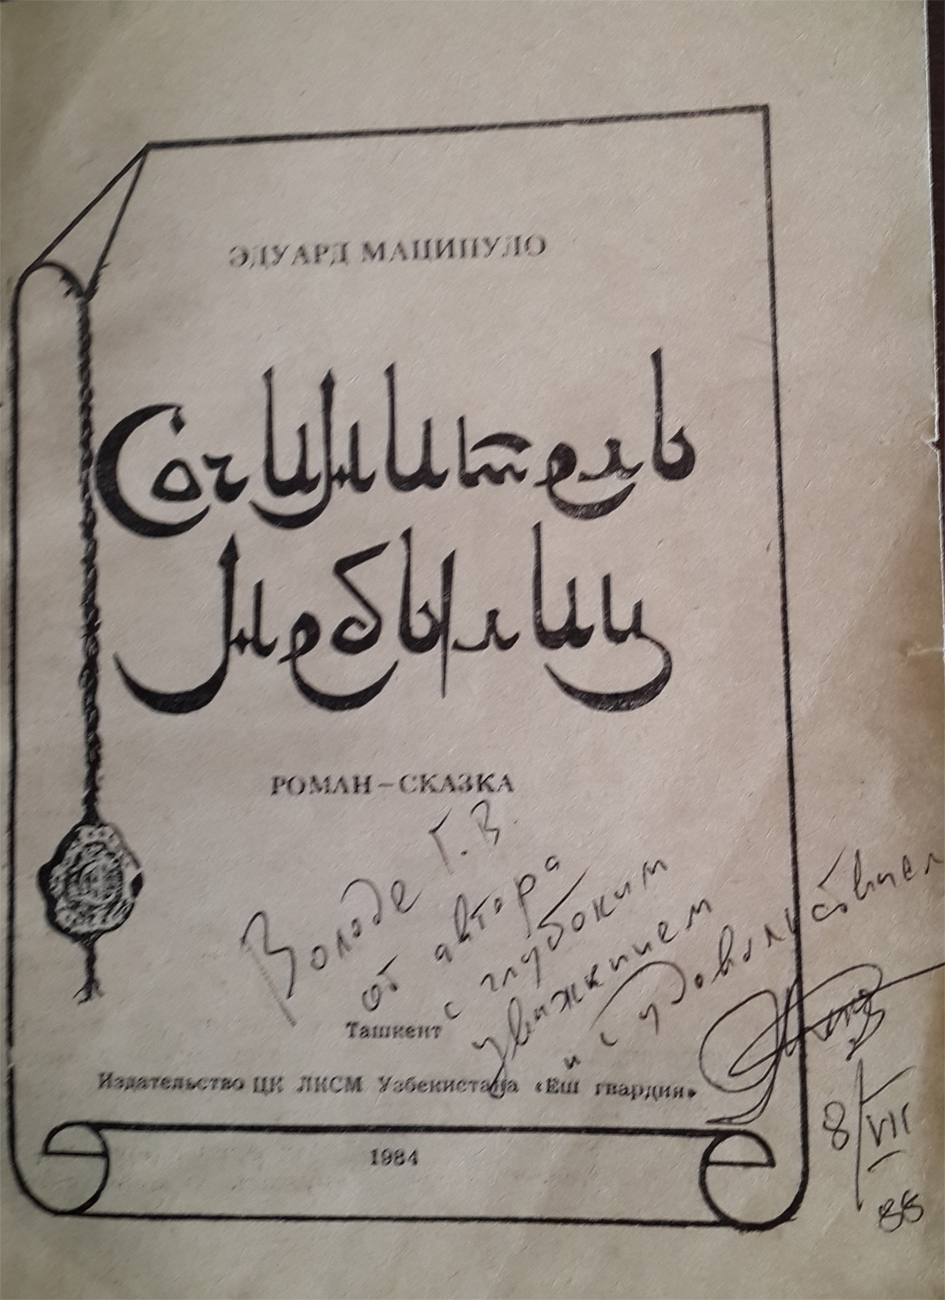 ЭДУАРД МАЦИПУЛО
Сочинитель
Небылиц
РОМАН – СКАЗКА
Володе Г. В.
от автора
с глубоким
уважением
и с удовольствием
Ташкент
Издательство ЦК ЛКСМ Узбекистана «Ёш гвардия»
1984
8/VII
88